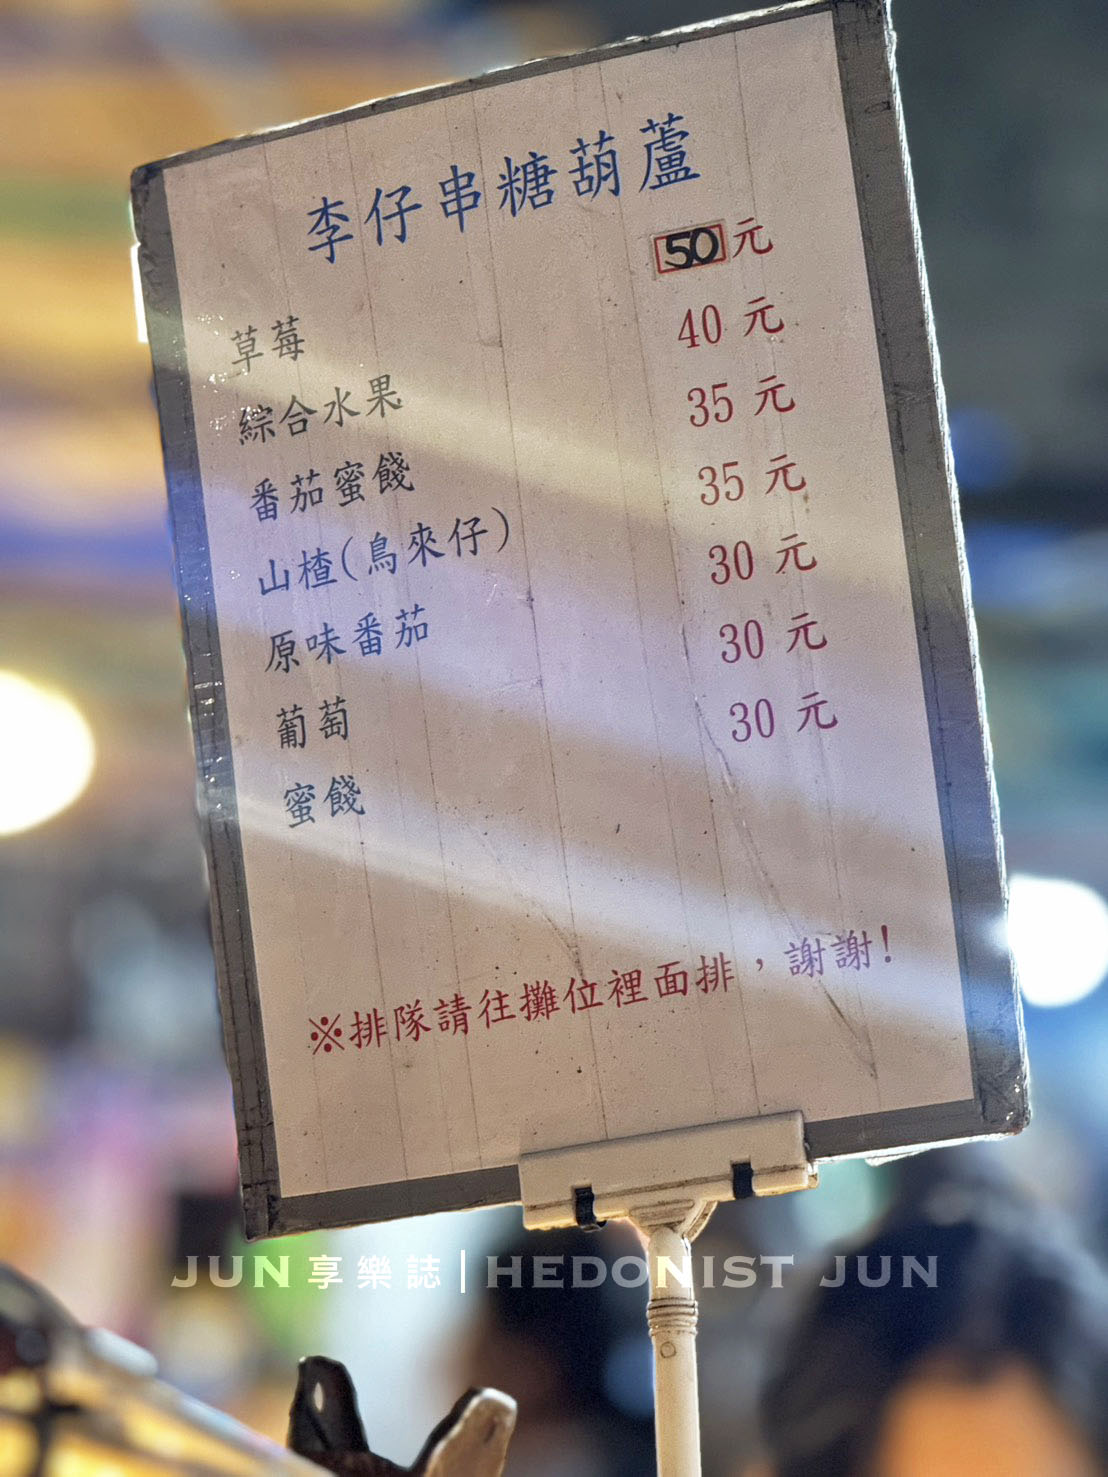 李仔串糖葫蘆
草莓 50元
綜合水果 40元
番茄蜜餞 35元
山楂(鳥來仔) 35元
原味番茄 30元
葡萄 30元
蜜餞 30元
※排隊請往攤位裡面排，謝謝!
JUN享樂誌|HEDONIST JUN